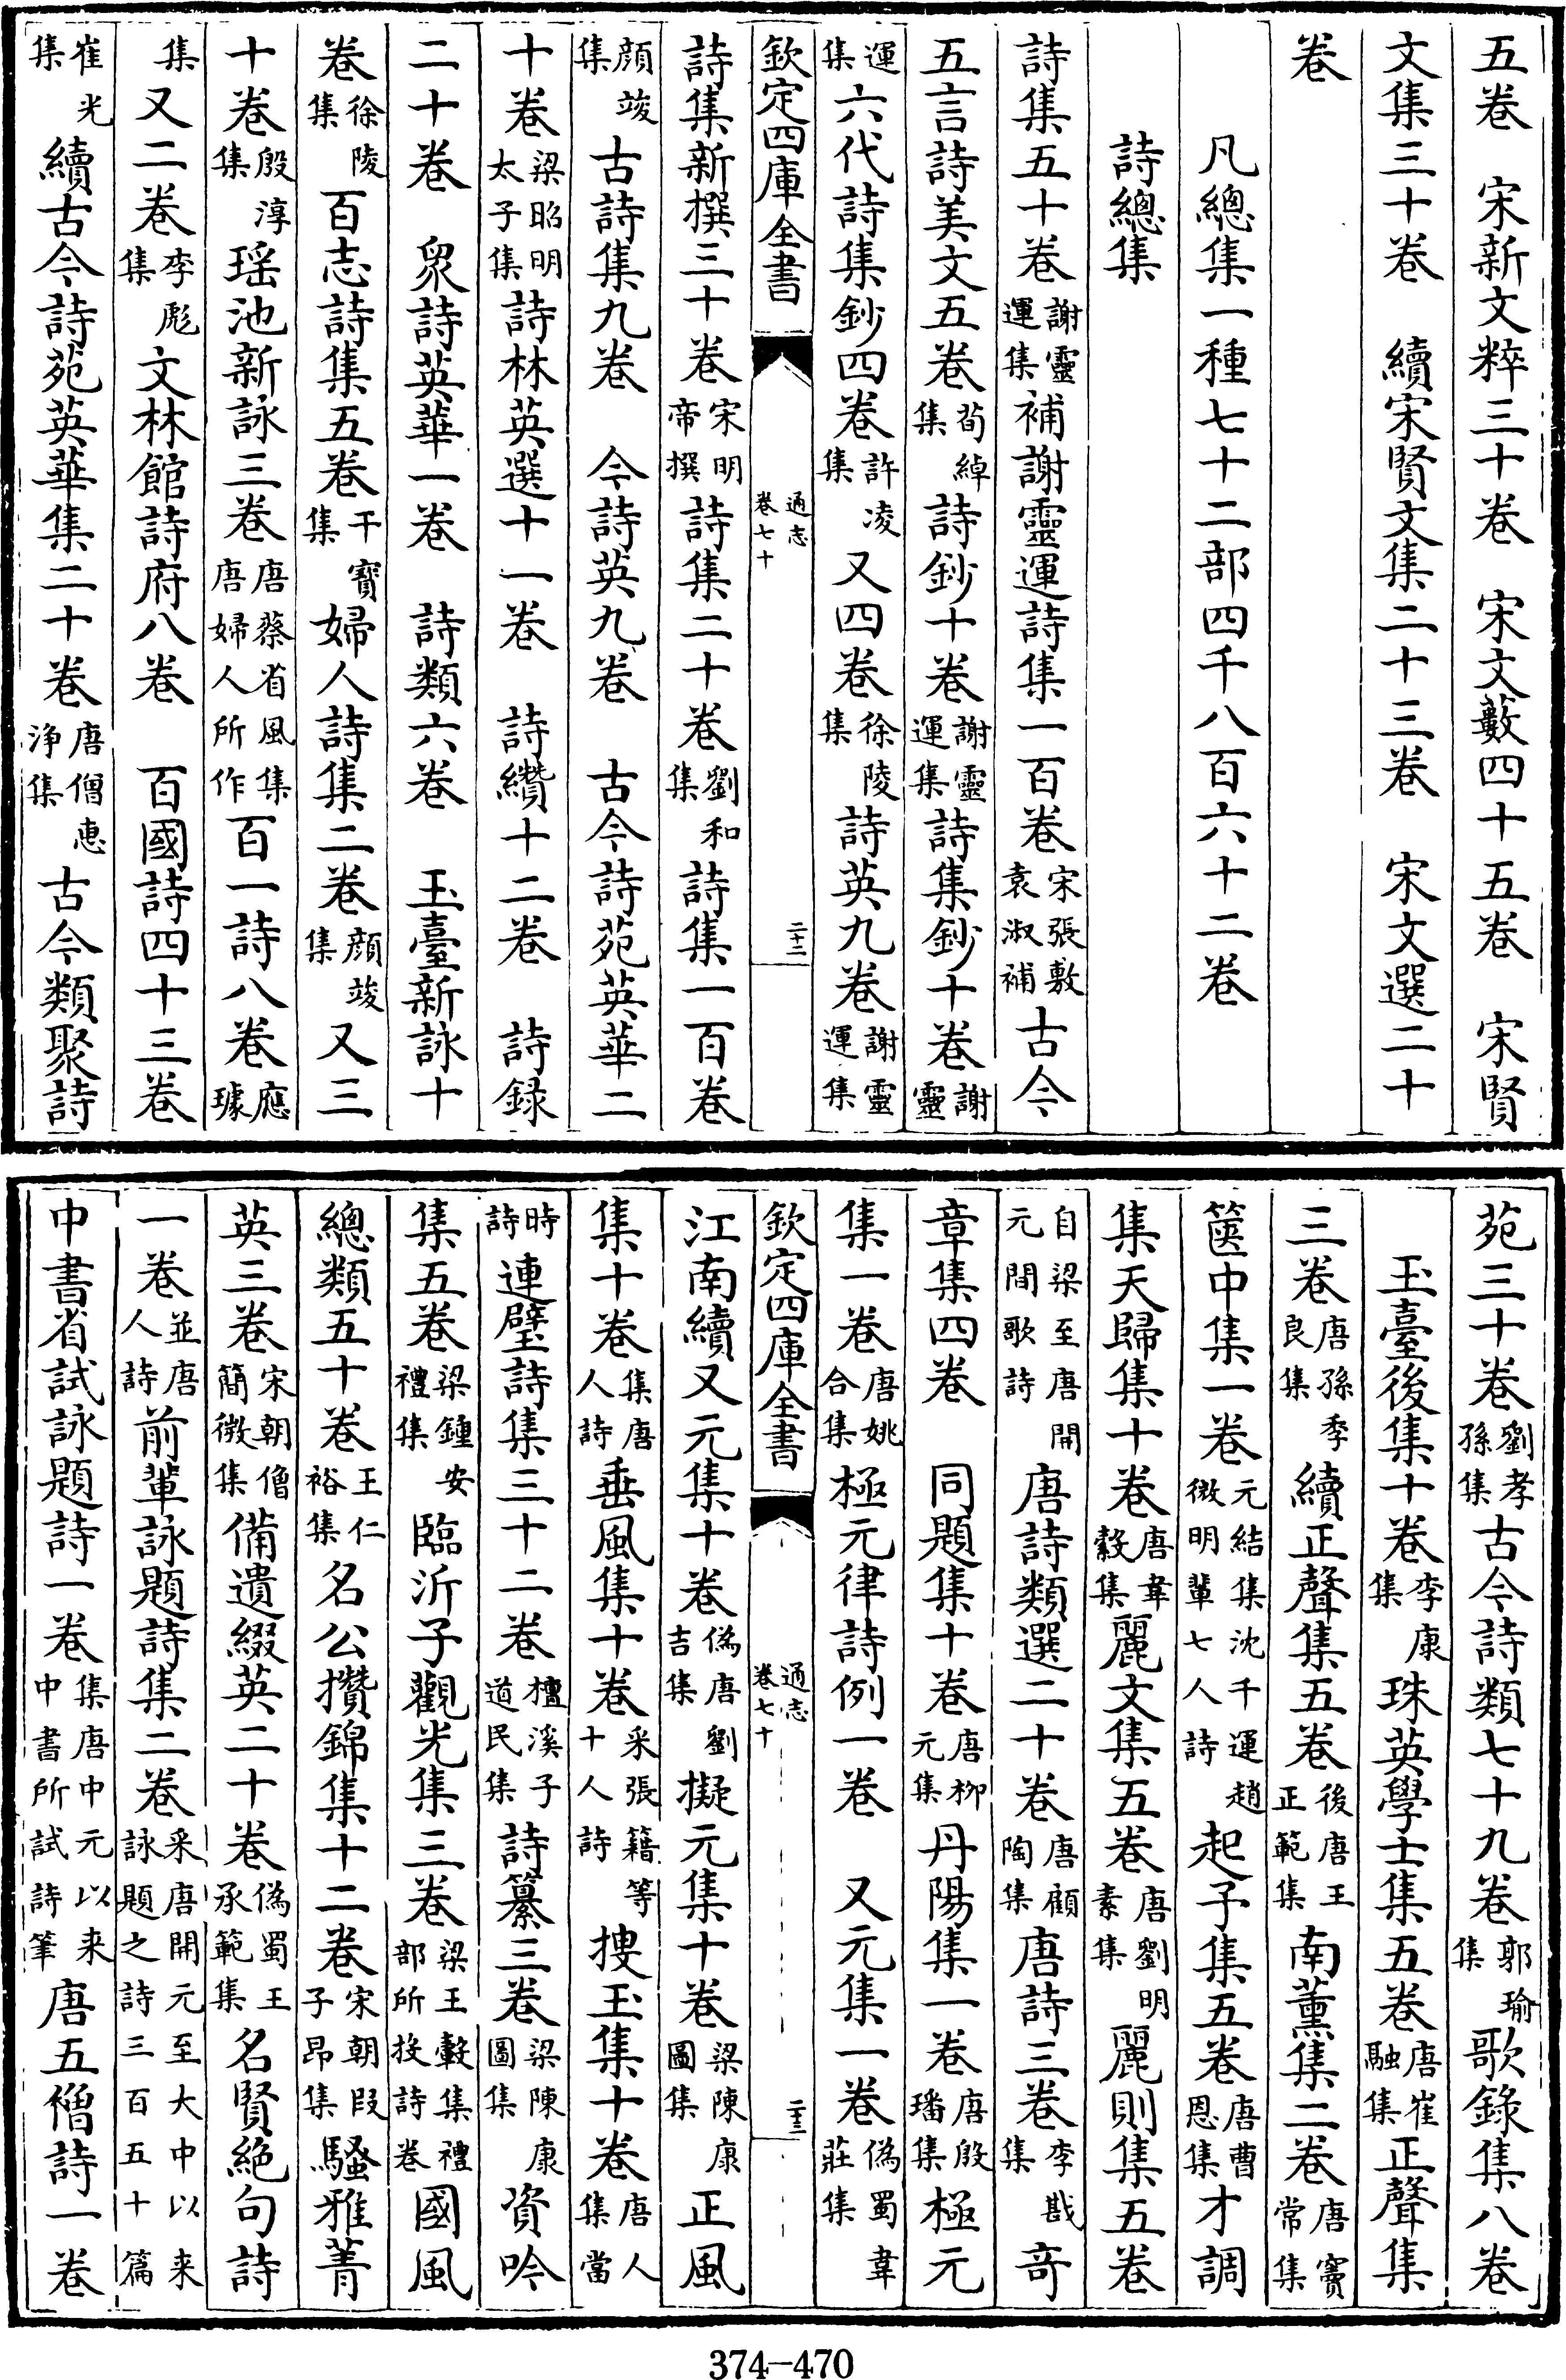 五卷　宋新文粹三十卷　宋文藪四十五卷　宋賢
文集三十卷　續宋賢文集二十三卷　宋文選二十
卷
凡總集一種七十二部四千八百六十二卷
詩總集
詩集五十卷謝靈運集補謝靈運詩集一百卷宋張敷袁淑補古今
五言詩美文五卷荀綽集詩鈔十卷謝靈運集詩集鈔十卷謝靈
運集六代詩集鈔四卷許凌集又四卷徐陵集詩英九卷謝靈運集
欽定四庫全書　通志卷七十　二十二
詩集新撰三十卷宋明帝撰詩集二十卷劉和集詩集一百卷
顔竣集古詩集九卷　今詩英九卷　古今詩苑英華二
十卷梁昭明太子集詩林英選十一卷　詩纘十二卷　詩録
二十卷　衆詩英華一卷　詩類六卷　玉臺新詠十
卷徐陵集百志詩集五卷干寶集婦人詩集二卷顔竣集又三
十卷殷淳集瑶池新詠三卷唐蔡省風集唐婦人所作百一詩八卷應璩
集又二卷李彪集文林館詩府八卷　百國詩四十三卷
崔光集續古今詩苑英華集二十卷唐僧惠浄集古今類聚詩
苑三十卷劉孝孫集古今詩類七十九卷郭瑜集歌錄集八卷
玉臺後集十卷李康集珠英學士集五卷唐崔融集正聲集
三卷唐孫季良集續正聲集五卷後唐王正範集南薰集二卷唐竇常集
篋中集一卷元結集沈千運趙微明輩七人詩起予集五卷唐曹恩集才調
集天歸集十卷唐韋縠集麗文集五卷唐劉明素集麗則集五卷
自梁至唐開元間歌詩唐詩類選二十卷唐顧陶集唐詩三卷李戡集奇
章集四卷　同題集十卷唐柳元集丹陽集一卷唐殷璠集極元
集一卷唐姚合集極元律詩例一卷　又元集一卷偽蜀韋莊集
欽定四庫全書　通志卷七十　二十三
江南續又元集十卷偽唐劉吉集擬元集十卷梁陳康圖集正風
集十卷集唐人詩垂風集十卷采張籍等十人詩搜玉集十卷唐人集當
時詩連璧詩集三十二卷檀溪子道民集詩纂三卷梁陳康圖集資吟
集五卷梁鍾安禮集臨沂子觀光集三卷梁王轂集禮部所投詩卷國風
總類五十卷王仁裕集名公攢錦集十二卷宋朝叚子昂集騷雅菁
英三卷宋朝僧簡微集備遺綴英二十卷偽蜀王承範集名賢絶句詩
一卷並唐人詩前輩詠題詩集二卷采唐開元至大中以来詠題之詩三百五十篇
中書省試詠題詩一卷集唐中元以来中書所試詩筆唐五僧詩一卷
374-470